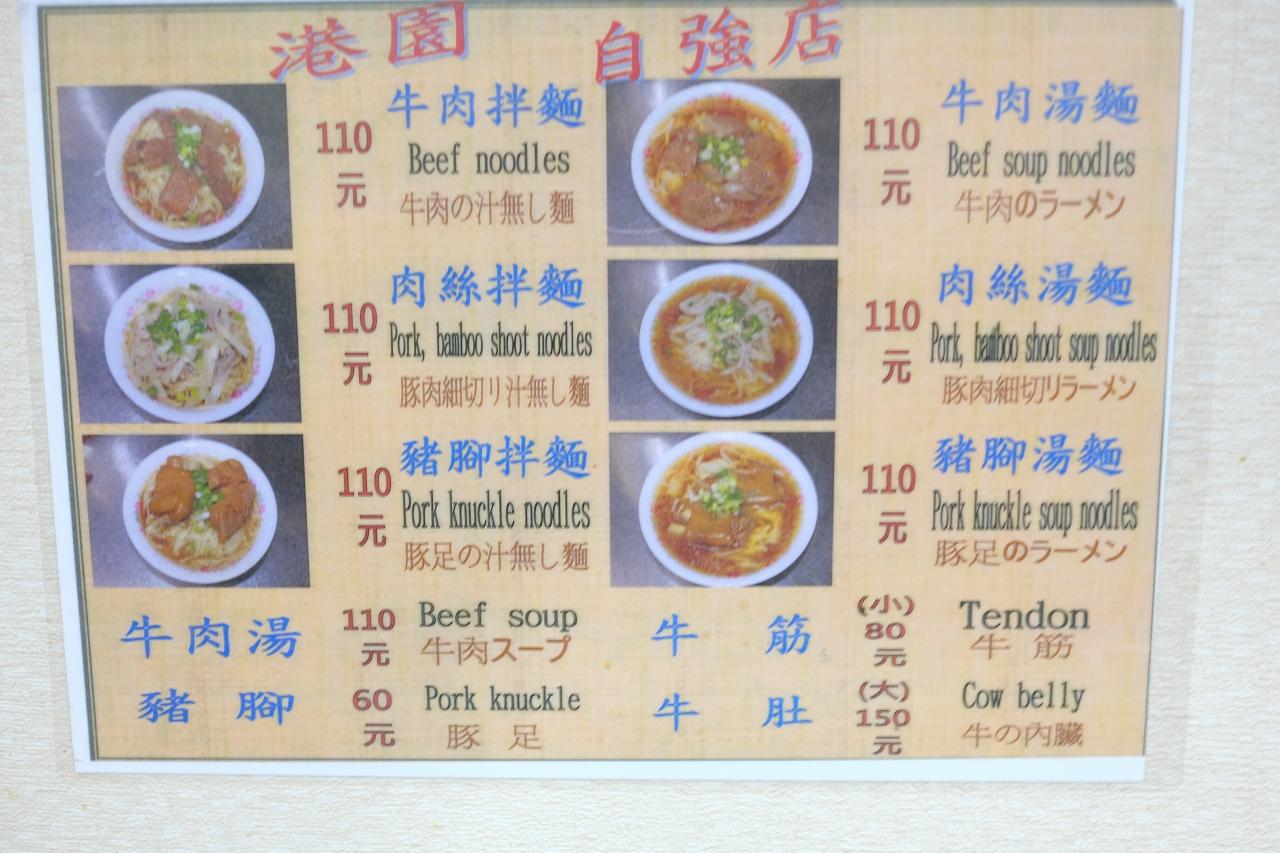 港園 自強店
牛肉拌麵
110
元
Beef noodles
牛肉の汁無し麵
牛肉湯麵
110
元
Beef soup noodles
牛肉のラーメン
肉絲拌麵
110
元
Pork, bamboo shoot noodles
豚肉細切り汁無し麵
肉絲湯麵
110
元
Pork, bamboo shoot soup noodles
豚肉細切りラーメン
豬腳拌麵
110
元
Pork knuckle noodles
豚足の汁無し麵
豬腳湯麵
110
元
Pork knuckle soup noodles
豚足のラーメン
牛肉湯
110
元
Beef soup
牛肉スープ
牛 筋
(小)
80
元
Tendon
牛 筋
豬 腳
60
元
Pork knuckle
豚 足
牛 肚
(大)
150
元
Cow belly
牛の內臟